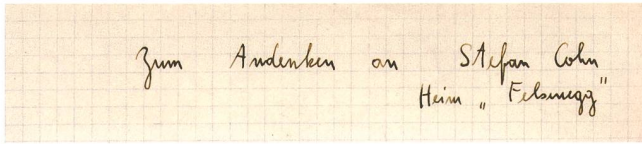 Zum Andenken an Stefan Cohn
Heim „Felsenegg"